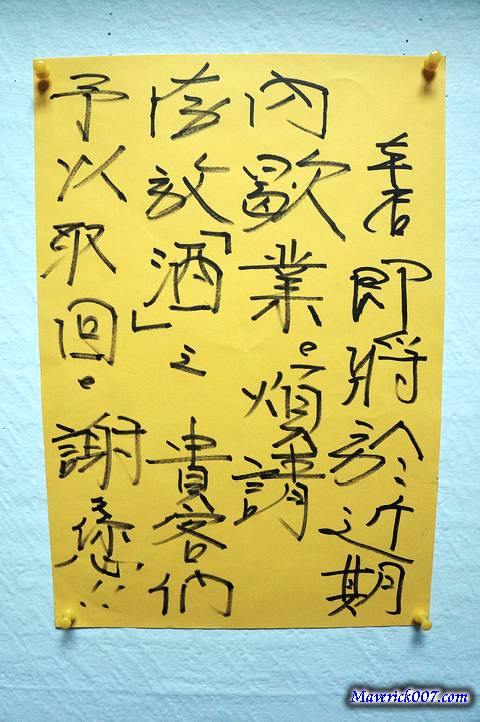 本店即將於近期
內歇業。煩請
寄放「酒」之貴客們
予以取回。謝々您!!
Maverick007.com